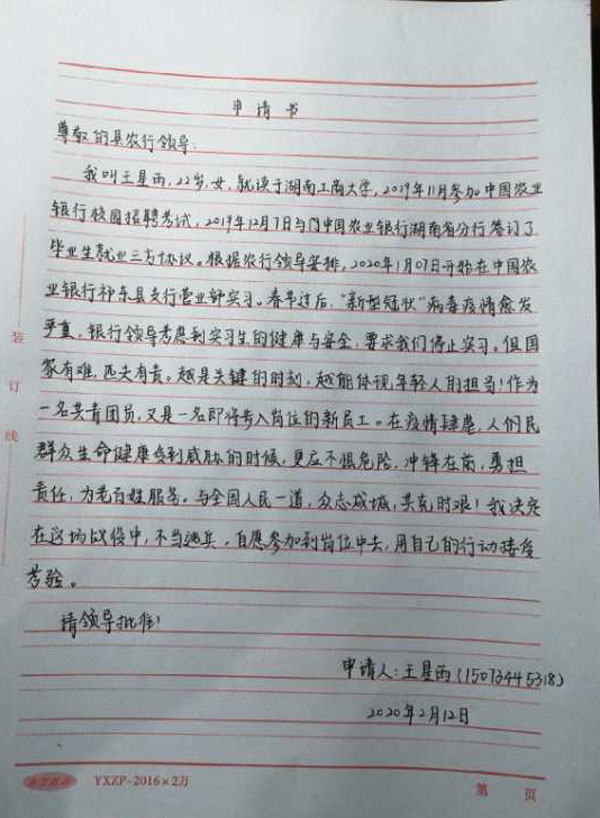 申请书
尊敬的县农行领导:
我叫王星雨,22岁,女,就读于湖南工商大学,2019年11月参加中国农业
银行校园招聘考试,2019年12月7日与中国农业银行湖南省分行签订了
毕业生就业三方协议。根据农行领导安排,2020年1月07日开始在中国农
业银行祁东县支行营业部实习。春节过后,“新型冠状”病毒疫情愈发
严重,银行领导考虑到实习生的健康与安全,要求我们停止实习。但国
家有难,匹夫有责。越是关键的时刻,越能体现年轻人的担当!作为
一名共青团员,又是一名即将步入岗位的新员工。在疫情肆虐,人们民
群众生命健康受到威胁的时候,更应不惧危险,冲锋在前,勇担
责任,为老百姓服务。与全国人民一道,众志成城,共克时艰!我决定
在这场战役中,不当逃兵,自愿参加到岗位中去,用自己的行动接受
考验。
请领导批准!
申请人:王星雨(15073445318)
2020年2月12日
装
订
线
YXZP-2016×2万
第 页